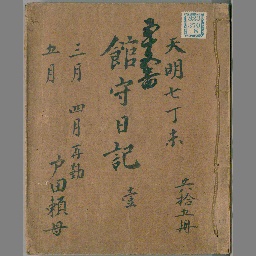 天明七丁未
共拾五冊
館守日記 壹
三月 四月再勤
五月
戸田頼母